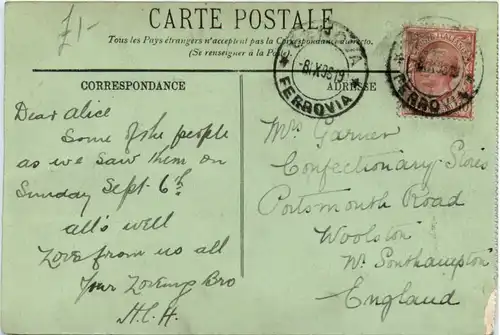 £1-
CARTE POSTALE
Tous les Pays étrangers n'acceptent pas la Correspondance au recto.
(Se renseigner à la Poste)
CORRESPONDANCE
ADRESSE
FERROVIA
FERROVIA
Dear Alice
Some of the people
as we saw them on
Sunday Sept. 6th
all's well
Love from us all
Your Loving Bro
H.C.H.
Mrs Garner
Confectionary Stores
Portsmouth Road
Woolston
Nr. Southampton
England